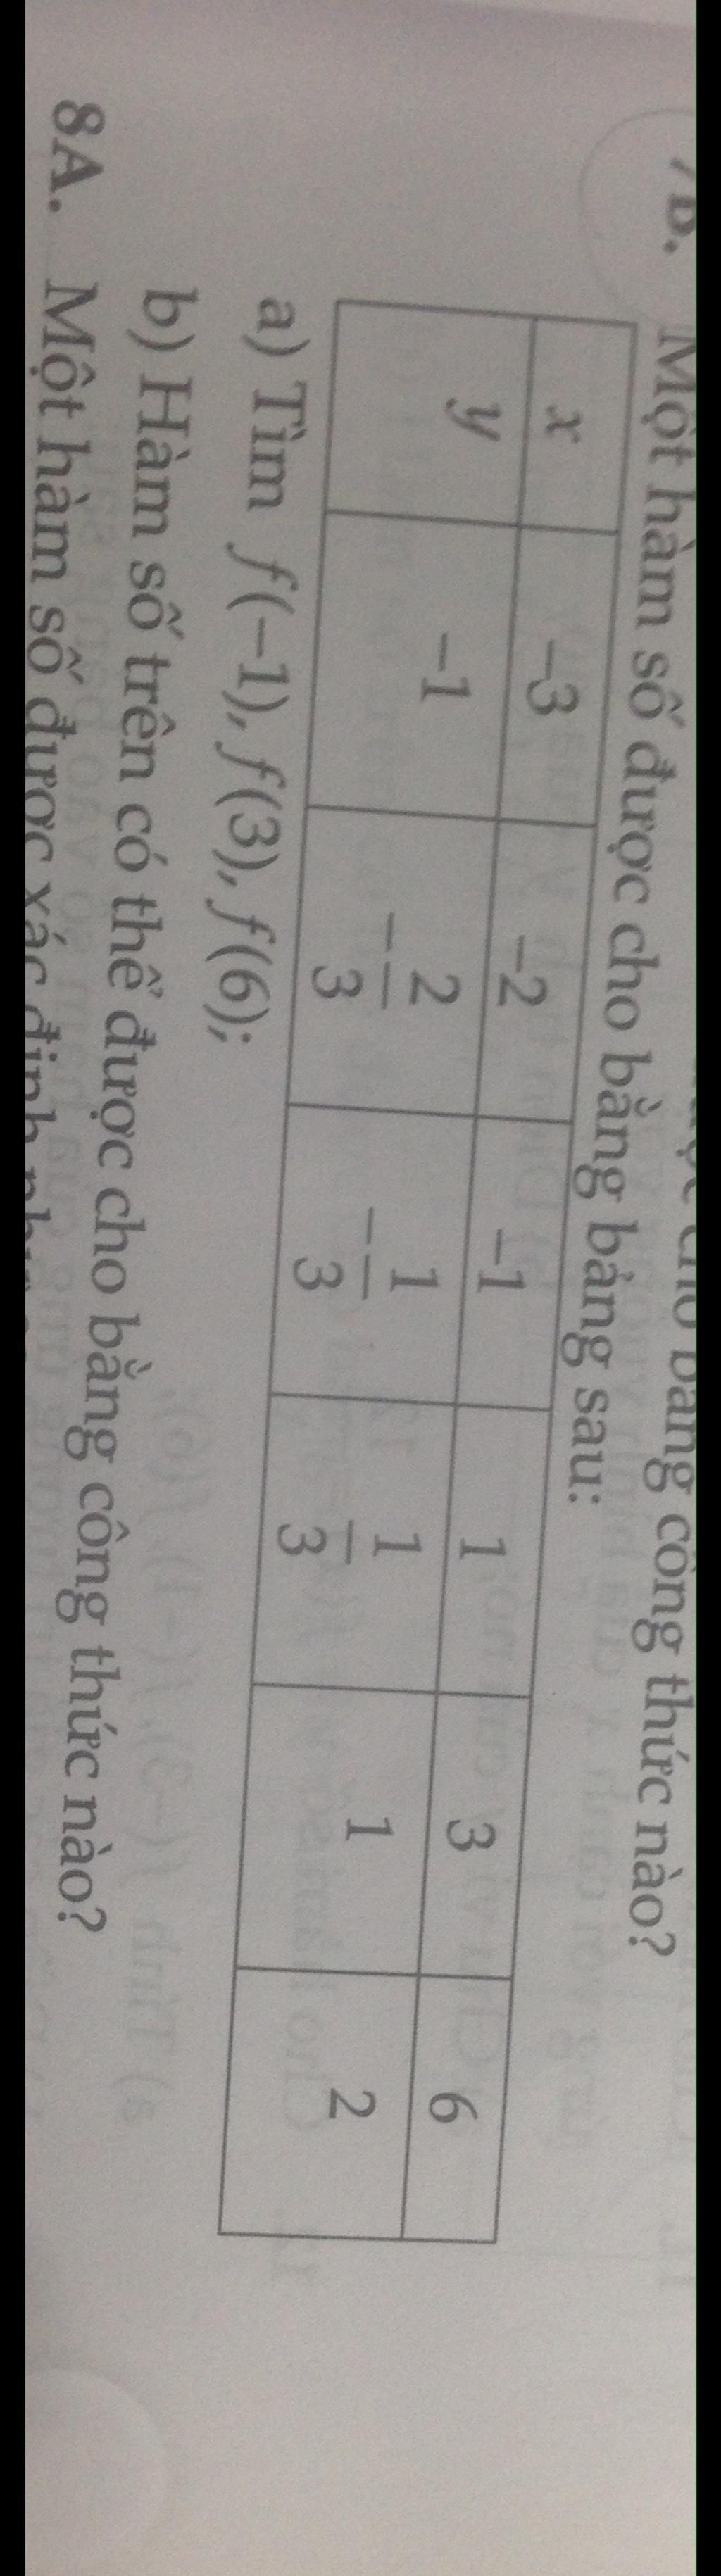 cho bằng công thức nào?
7B. Một hàm số được cho bằng bảng sau:
x -3 -2 -1 1 3 6
y -1 -2/3 -1/3 1/3 1 2
a) Tìm f(-1), f(3), f(6);
b) Hàm số trên có thể được cho bằng công thức nào?
8A. Một hàm số được xác định